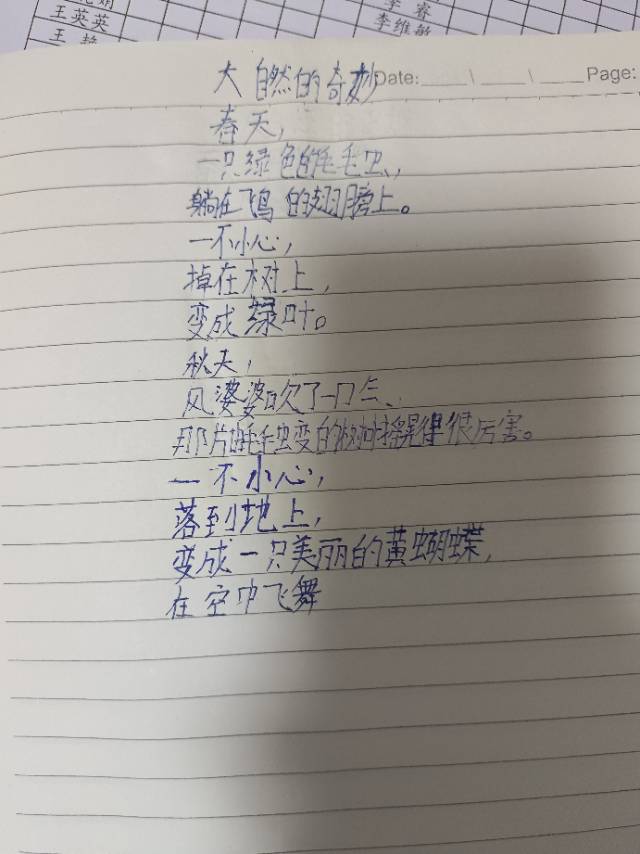 王英英
李睿
李维敏
Date: ____ \ ____ \ ____ Page:
大自然的奇妙
春天，
一只绿色的毛毛虫，
躺在飞鸟的翅膀上。
一不小心，
掉在树上，
变成绿叶。
秋天，
风婆婆吹了一口气、
那片由毛毛虫变的树叶摇晃得很厉害。
一不小心，
落到地上，
变成一只美丽的黄蝴蝶，
在空中飞舞